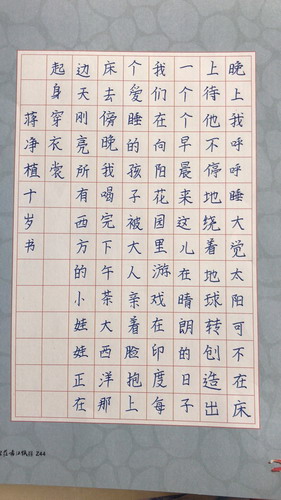 晚上我呼呼睡大觉太阳可不在床
上待他不停地绕着地球转创造出
一个个早晨来这儿在晴朗的日子
我们在向阳花园里游戏在印度每
个爱睡的孩子被大人亲着脸抱上
床去傍晚我喝完下午茶大西洋那
边天刚亮所有西方的小娃娃正在
起身穿衣裳
蒋净植十岁书